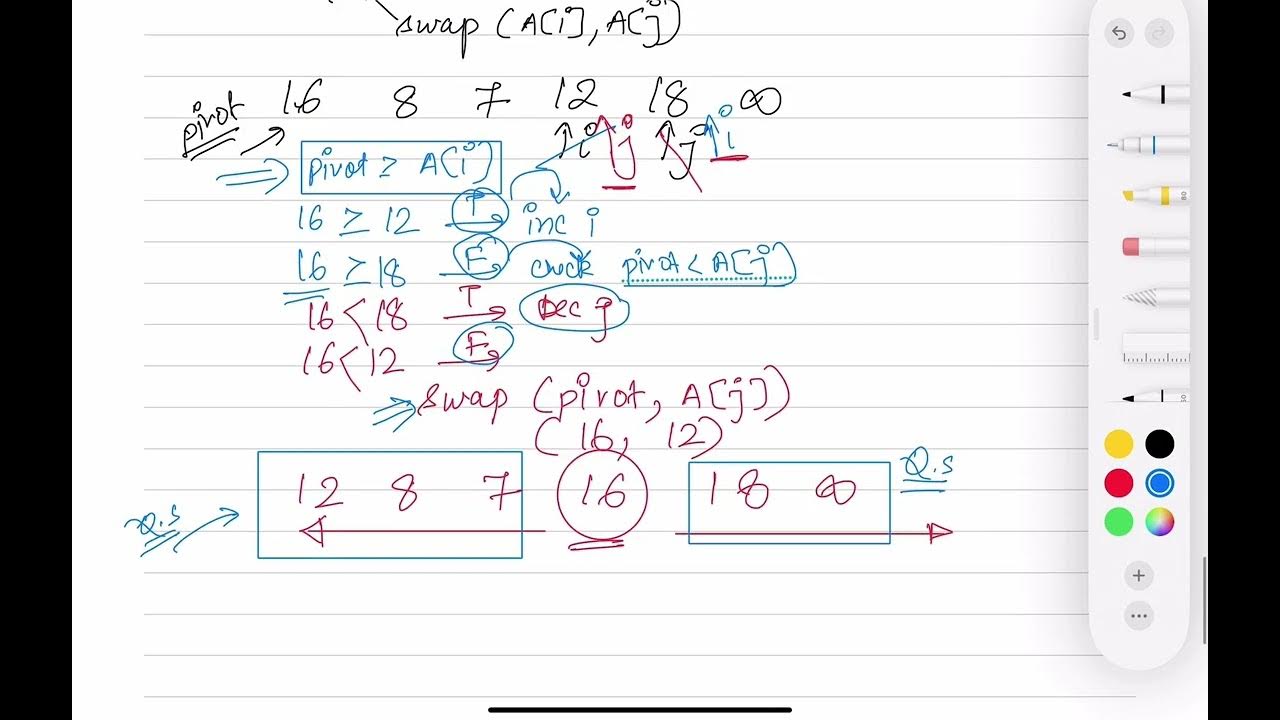 swap (A[i], A[j])
16 8 7 12 18 ∞
pivot i j j i
pivot ≥ A[i]
16 ≥ 12 T inc i
16 ≥ 18 F check pivot < A[j]
16 < 18 T Dec j
16 < 12 F
swap (pivot, A[j])
(16, 12)
12 8 7 16 18 ∞ Q.S
Q.S